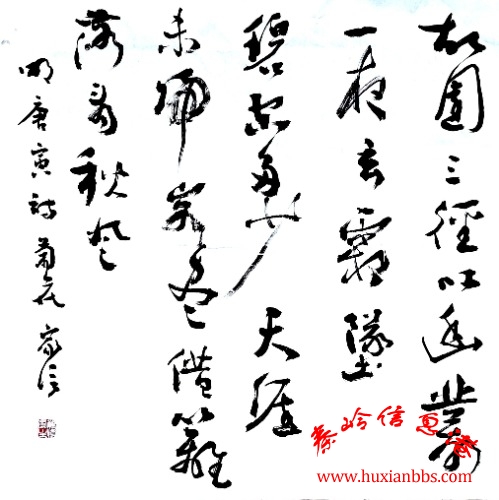 故園三徑吐幽叢
一夜玄霜墜
碧空多少天涯
未歸客盡借籬
落看秋風
明唐寅詩菊花 家信
www.huxianbbs.com